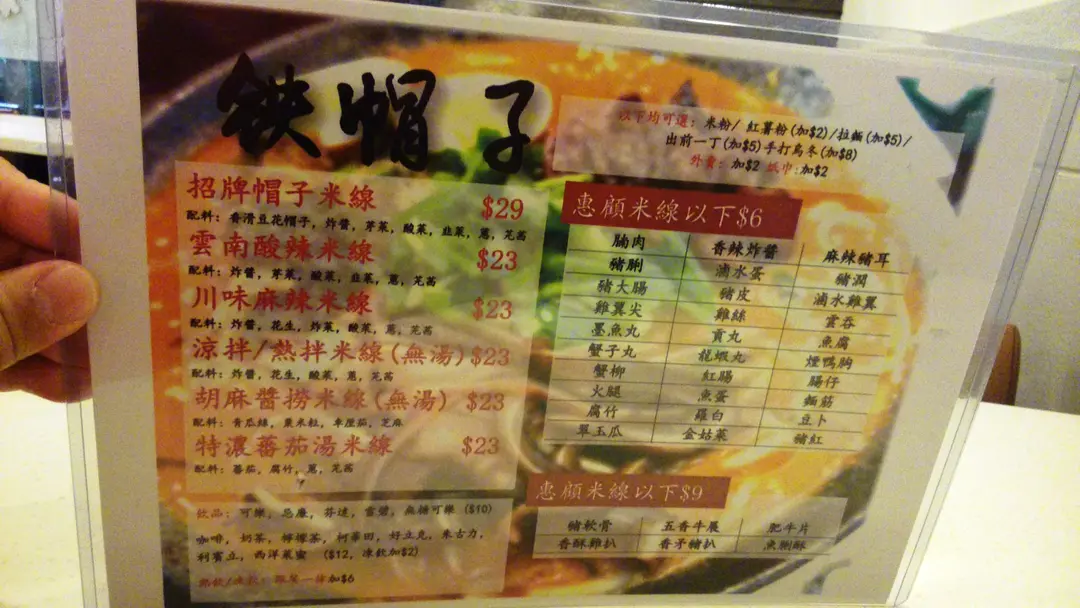 铁帽子
以下均可選: 米粉/ 紅薯粉(加$2)/拉麵(加$5)/
出前一丁(加$5)手打烏冬(加$8)
外賣: 加$2 紙巾:加$2
招牌帽子米線 $29
配料: 香滑豆花帽子, 炸醬, 芽菜, 酸菜, 韭菜, 蔥, 芫茜
雲南酸辣米線 $23
配料: 炸醬, 芽菜, 酸菜, 韭菜, 蔥, 芫茜
川味麻辣米線 $23
配料: 炸醬, 花生, 炸菜, 酸菜, 蔥, 芫茜
涼拌/熱拌米線(無湯)$23
配料: 炸醬, 花生, 酸菜, 蔥, 芫茜
胡麻醬撈米線(無湯) $23
配料: 青瓜絲, 粟米粒, 車厘茄, 芝麻
特濃蕃茄湯米線 $23
配料: 蕃茄, 腐竹, 蔥, 芫茜
飲品: 可樂, 忌廉, 芬達, 雪碧, 無糖可樂 ($10)
咖啡, 奶茶, 檸檬茶, 柯華田, 好立克, 朱古力,
利賓立, 西洋菜蜜 ($12, 凍飲加$2)
加$6
惠顧米線以下$6
腩肉 香辣炸醬 麻辣豬耳
豬脷 滷水蛋 豬潤
豬大腸 豬皮 滷水雞翼
雞翼尖 雞絲 雲吞
墨魚丸 貢丸 魚腐
蟹子丸 龍蝦丸 煙鴨胸
蟹柳 紅腸 腸仔
火腿 魚蛋 麵筋
腐竹 羅白 豆卜
翠玉瓜 金菇菜 豬紅
惠顧米線以下$9
豬軟骨 五香牛𦟌 肥牛片
香酥雞扒 香矛豬扒 魚脷酥